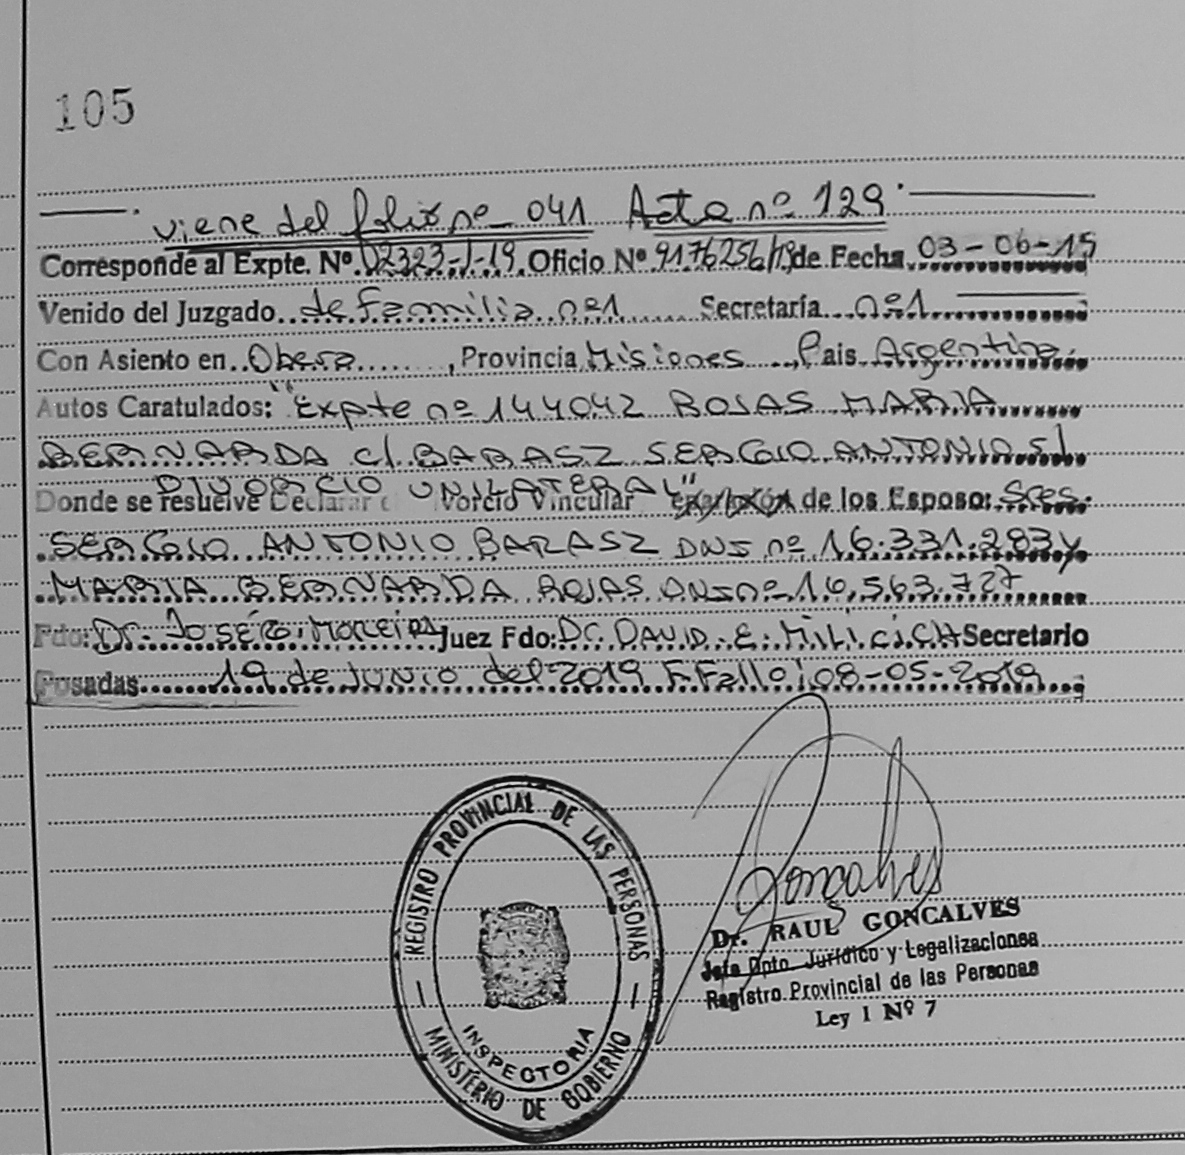 105
viene del folio nº 041 Acta nº 129
Corresponde al Expte. Nº 02323-J-19 Oficio Nº 9176256/19 de Fecha 03-06-15
Venido del Juzgado de Familia nº1 Secretaría nº1
Con Asiento en Obera, Provincia Misiones, Pais Argentina
Autos Caratulados: "Expte nº 144042 ROJAS MARIA
BERNARDA c/ BARASZ SERGIO ANTONIO s/
DIVORCIO UNILATERAL"
Donde se resuelve Declarar Vorcio Vincular de los Esposo: Sres.
SERGIO ANTONIO BARASZ DNI nº 16.331.283 y
MARIA BERNARDA ROJAS DNI nº 16.563.727
Fdo: Dr. José Moreira Juez Fdo: Dr. DAVID E. MILICICH Secretario
Posadas 19 de Junio del 2019 F. Fallo: 08-05-2019
REGISTRO PROVINCIAL DE LAS PERSONAS
INSPECTORIA
MINISTERIO DE GOBIERNO
Goncalves
Dr. RAUL GONCALVES
Jefe Dpto. Jurídico y Legalizaciones
Registro Provincial de las Personas
Ley I Nº 7